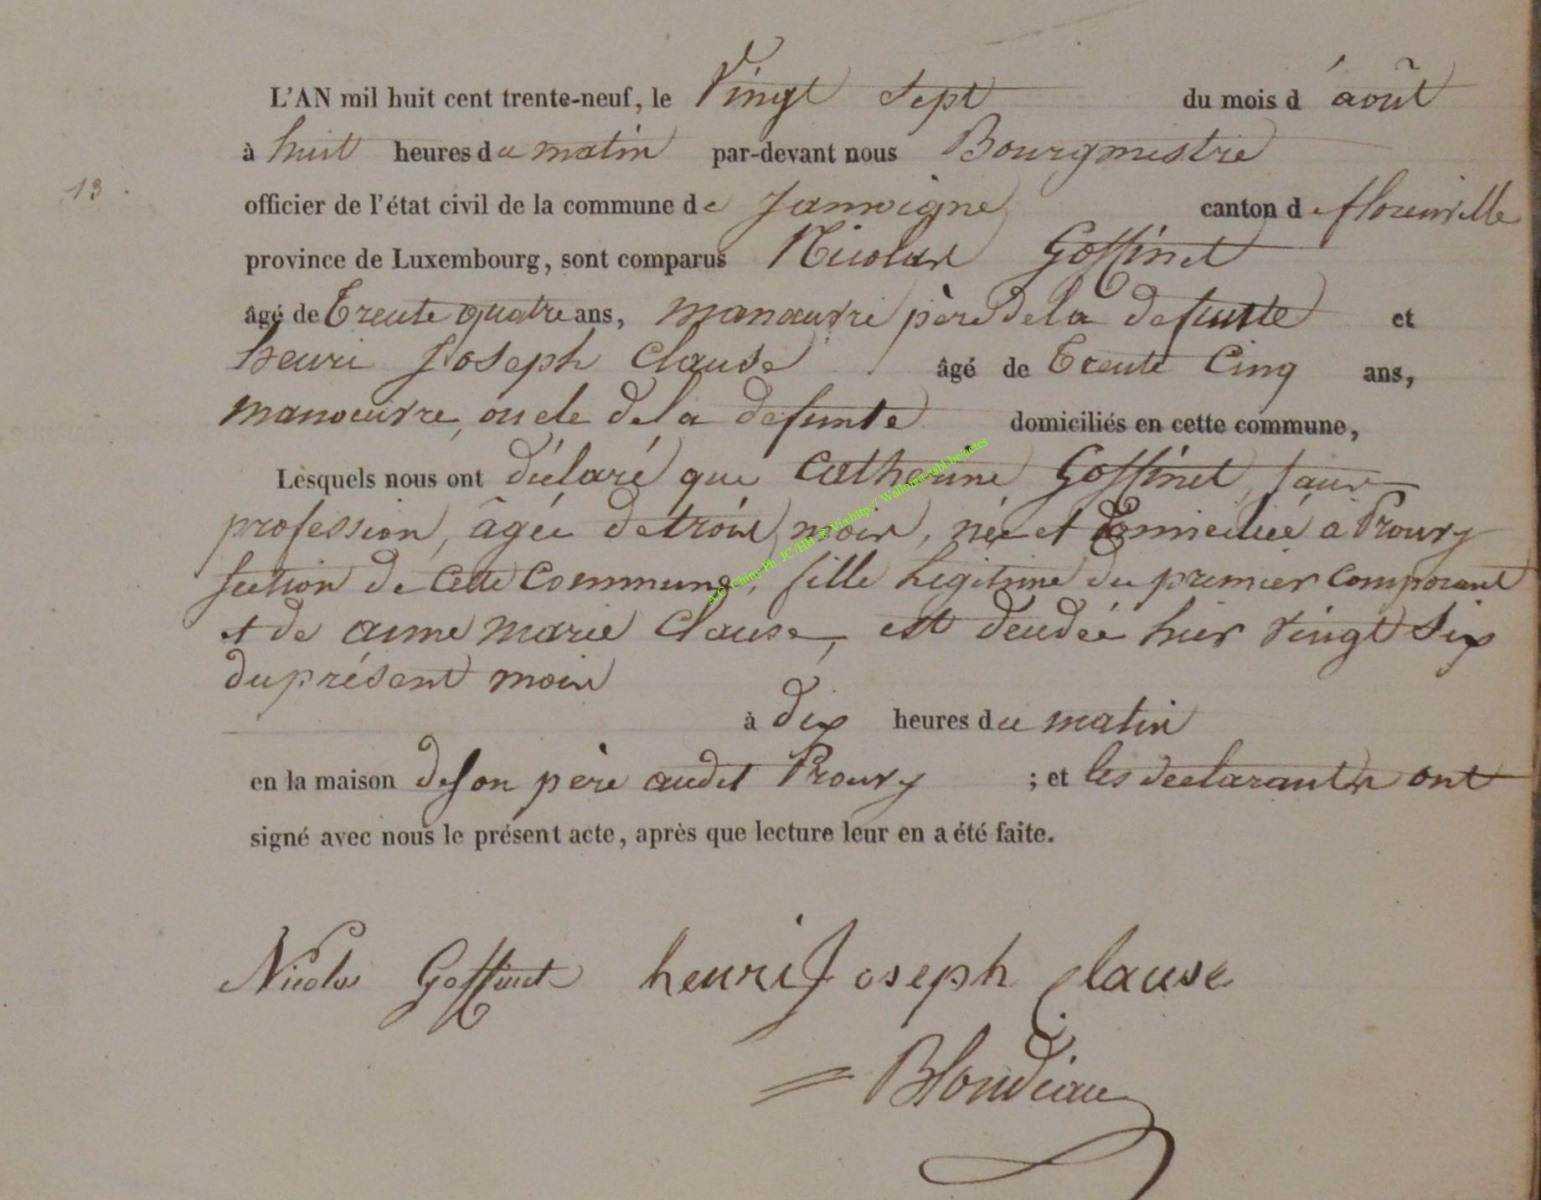 L'AN mil huit cent trente-neuf, le Vingt sept du mois d'août
à huit heures du matin par-devant nous Bourgmestre
13.
officier de l'état civil de la commune de Jamoigne canton de florenville
province de Luxembourg, sont comparus Nicolas Goffinet
âgé de trente quatre ans, manœuvre père de la defunte et
henri Joseph Clause âgé de trente Cinq ans,
manoeuvre, oncle de la defunte domiciliés en cette commune,
Lesquels nous ont déclaré que Catherine Goffinet, sans
profession, âgée de trois mois, née et domiciliée à Prouvy
section de cette Commune, fille legitime du premier Comparant
et de anne marie Clause, est décédée hier vingt six
du présent mois
à dix heures du matin
en la maison de son père audit Prouvy ; et les declarants ont
signé avec nous le présent acte, après que lecture leur en a été faite.
Nicolas Goffinet henri Joseph Clause
Blondiau